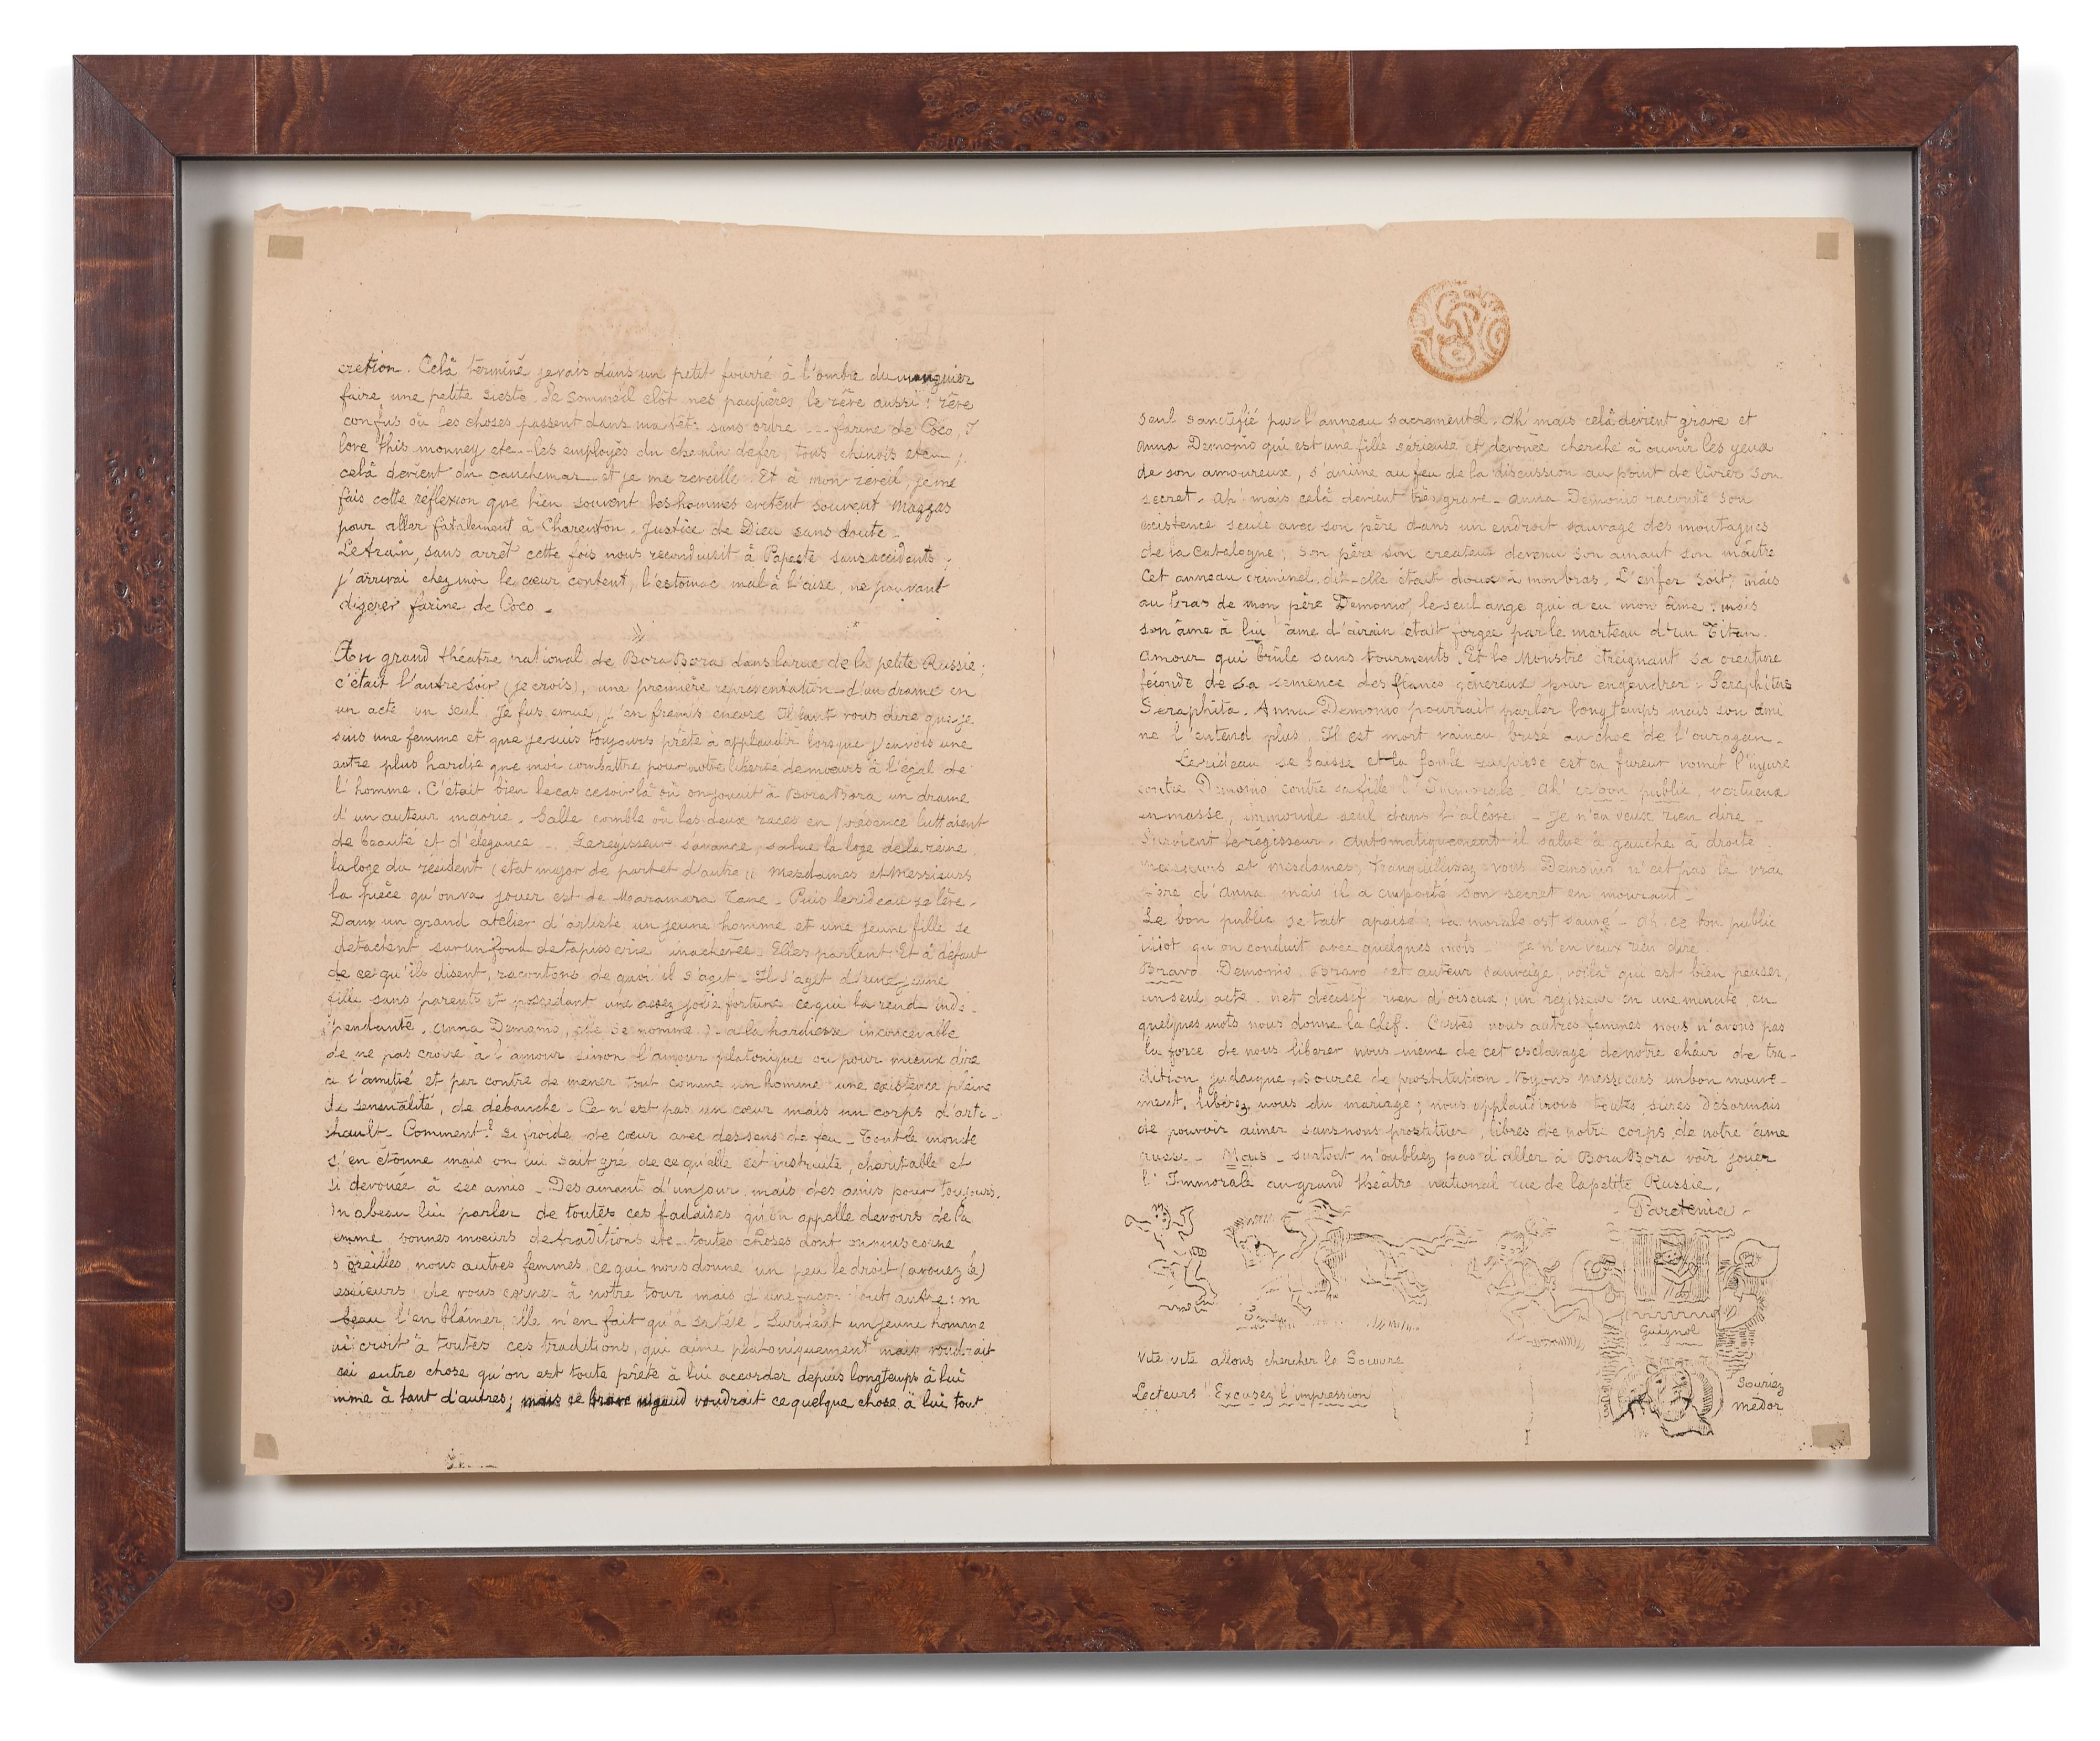 cretion. Celà terminé je vais dans un petit fourré à l'ombre du manguier
faire une petite sieste. Le sommeil clôt mes paupières le rêve aussi: rêve
confus où les choses passent dans ma tête sans ordre farine de Coco, I
love this monney etc.. les employés du chemin de fer, tous chinois etc..;
celà devient du cauchemar et je me reveille. Et à mon reveil, je me
fais cette réflexion que bien souvent les hommes evitent souvent Mazzas
pour aller fatalement à Charenton. Justice de Dieu sans doute.
Le train, sans arrêt cette fois nous reconduisit à Papeete sans accidents;
j'arrivai chez moi le cœur content, l'estomac mal à l'aise, ne pouvant
digerer farine de Coco.
Au grand théatre national de Bora Bora dans la rue de la petite Russie;
c'était l'autre soir (je crois), une première représentation d'un drame en
un acte un seul. Je fus emue, j'en fremis encore Il faut vous dire que je
suis une femme et que je suis toujours prête à applaudir lorsque j'en vois une
autre plus hardie que moi combattre pour notre liberté de mœurs à l'égal de
l'homme. C'était bien le cas ce soir là où on jouait à Bora Bora un drame
d'un auteur maorie. Salle comble où les deux races en présence luttaient
de beauté et d'élégance. Le regisseur s'avance, salue la loge de la reine
la loge du résident (etat major de part et d'autre) Mesdames et Messieurs
la pièce qu'on va jouer est de Maramara Tane. Puis le rideau se lève.
Dans un grand atelier d'artiste un jeune homme et une jeune fille se
detachent sur un fond de tapisserie inachevée. Elles parlent. Et à défaut
de ce qu'ils disent, racontons de quoi il s'agit. Il s'agit d'une jeune
fille sans parents et possedant une assez jolie fortune ce qui la rend indé-
pendante. Anna Demonio, elle se nomme a la hardiesse inconcevable
de ne pas croire à l'amour sinon l'amour platonique ou pour mieux dire
à l'amitié et par contre de mener tout comme un homme une existence pleine
de sensualité, de débauche. Ce n'est pas un cœur mais un corps d'arti-
chault. Comment? si froide de cœur avec des sens de feu. Tout le monde
s'en étonne mais on lui sait gré de ce qu'elle est instruite, charitable et
si devouée à ses amis. Des amants d'un jour mais des amis pour toujours.
On a beau lui parler de toutes ces fadaises qu'on appelle devoirs de la
emme bonnes moeurs de traditions etc. toutes choses dont on nous corne
s oreilles, nous autres femmes, ce qui nous donne un peu le droit (avouez le)
essieurs de vous corner à notre tour mais d'une façon tout autre: on
beau l'en blâmer, elle n'en fait qu'à sa tête. Survient un jeune homme
ui croit à toutes ces traditions, qui aime platoniquement mais voudrait
ssi autre chose qu'on est toute prête à lui accorder depuis longtemps à lui
mme à tant d'autres; mais ce brave nigaud voudrait ce quelque chose à lui tout
seul sanctifié par l'anneau sacramentel. Ah! mais celà devient grave et
Anna Demonio qui est une fille sérieuse et devouée cherche à ouvrir les yeux
de son amoureux, s'anime au feu de la discussion au point de livrer son
secret. Ah! mais celà devient très grave. Anna Demonio raconte son
existence seule avec son père dans un endroit sauvage des montagnes
de la Catalogne; son père son createur devenu son amant son maître
Cet anneau criminel, dit-elle était doux à mon bras. L'enfer soit, mais
au bras de mon père Demonio, le seul ange qui a eu mon âme: mais
son âme à lui âme d'airain était forgée par le marteau d'un Titan.
Amour qui brûle sans tourments. Et le Monstre étreignant sa creature
féconde de sa semence des flancs généreux pour engendrer Seraphitus
Seraphita. Anna Demonio pourrait parler longtemps mais son ami
ne l'entend plus. Il est mort vaincu brisé au choc de l'ouragan.
Le rideau se baisse et la foule surprise est en fureur vomit l'injure
contre Demonio contre sa fille l'Immorale. Ah! ce bon public, vertueux
en masse, immonde seul dans l'alcôve. Je n'en veux rien dire.
Survient le régisseur. Automatiquement il salue à gauche à droite.
Messieurs et mesdames, tranquillisez vous Demonio n'est pas le vrai
père d'Anna mais il a emporté son secret en mourant.
Le bon public se tait apaisé: la morale est sauve. Ah! ce bon public
idiot qu'on conduit avec quelques mots. Je n'en veux rien dire
Bravo Demonio. Bravo cet auteur sauvage, voilà qui est bien penser,
un seul acte net décisif rien d'oiseux: un régisseur en une minute, en
quelques mots nous donne la clef. Certes nous autres femmes nous n'avons pas
la force de nous libérer nous même de cet esclavage de notre chair de tra-
dition judaïque, source de prostitution. Voyons messieurs un bon mouve-
ment, libérez nous du mariage; nous applaudirons toutes sûres désormais
de pouvoir aimer sans nous prostituer, libres de notre corps de notre âme
aussi. Mais surtout n'oubliez pas d'aller à Bora Bora voir jouer
l'Immorale au grand théâtre national rue de la petite Russie.
Paretenia
Guignol
Vite vite allons chercher le
Lecteurs Excusez l'impression
Souriez
Médor